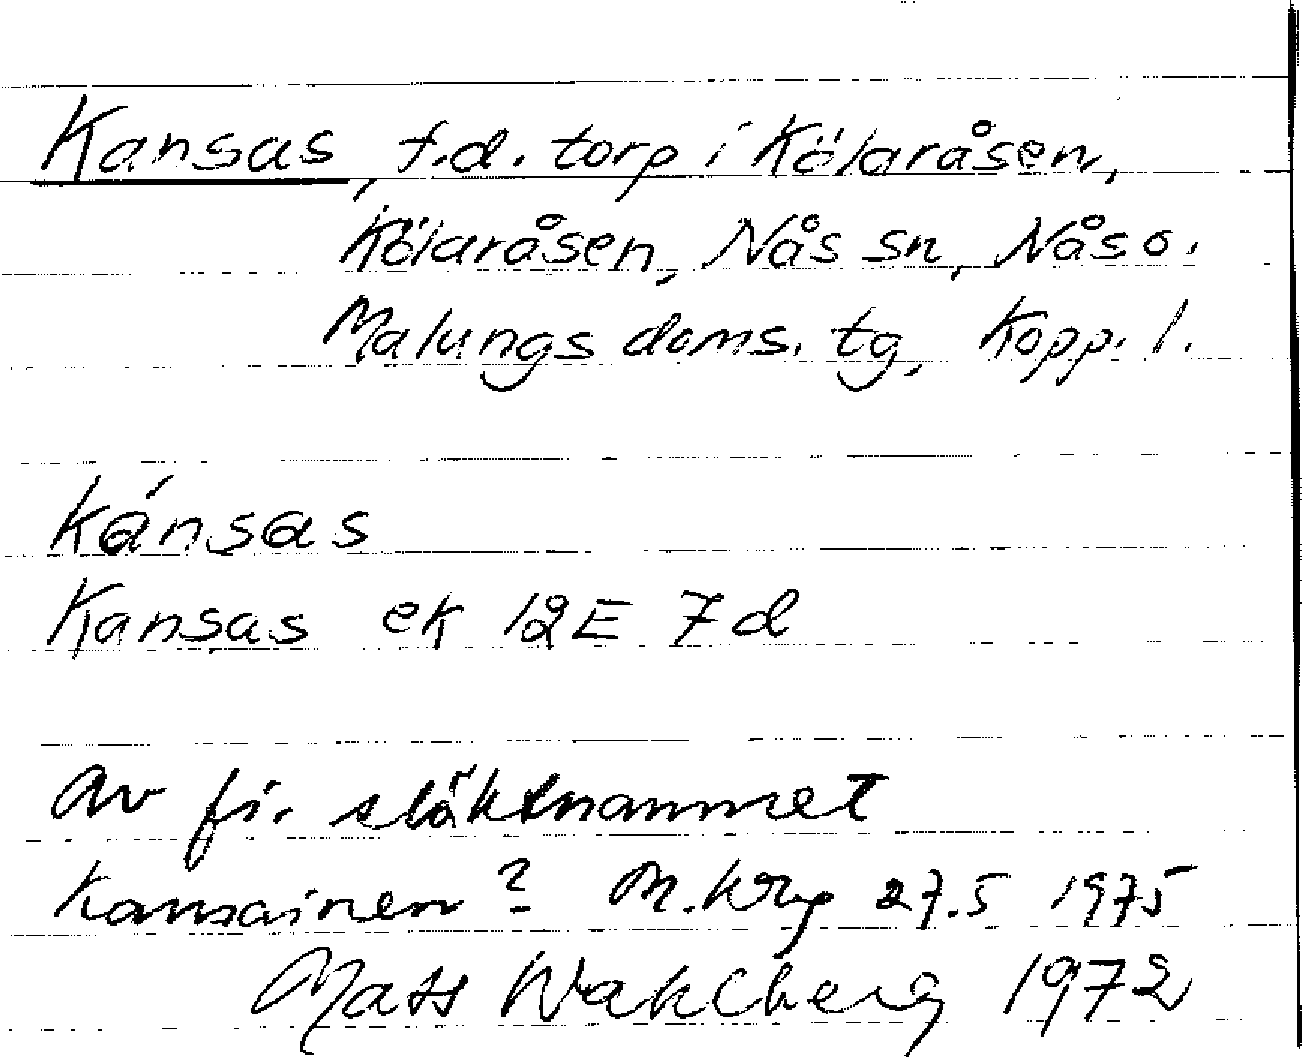 Kansas, f.d. torp i Kölaråsen,
Kölaråsen, Nås sn, Nås o.
Malungs doms. tg, Kopp. l.
Kánsas
Kansas ek 12E 7d
Av fi. släktnamnet
Kansainen? M. Wbg 27.5 1975
Mats Wahlberg 1972